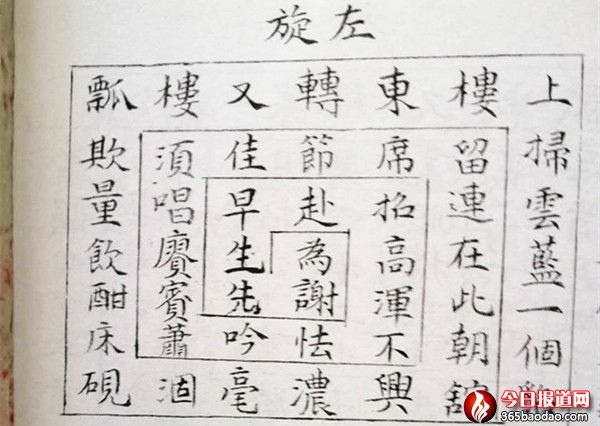 左旋
上掃雲藍一個
樓留連在此朝
東席招高渾不興
轉節赴為謝怯濃
又佳早生先吟毫
樓須唱賡賓蕭涸
瓢欺量飲酣床硯
今日报道网
365baodao.com